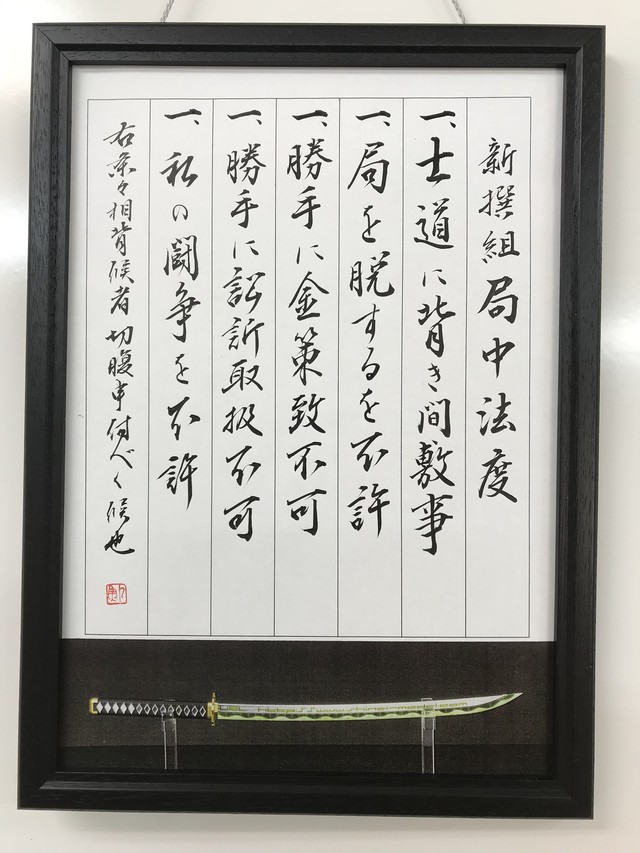 新撰組局中法度
一、士道に背き間敷事
一、局を脱するを不許
一、勝手に金策致不可
一、勝手に訴訟取扱不可
一、私の闘争を不許
右条々相背候者切腹申付べく候也